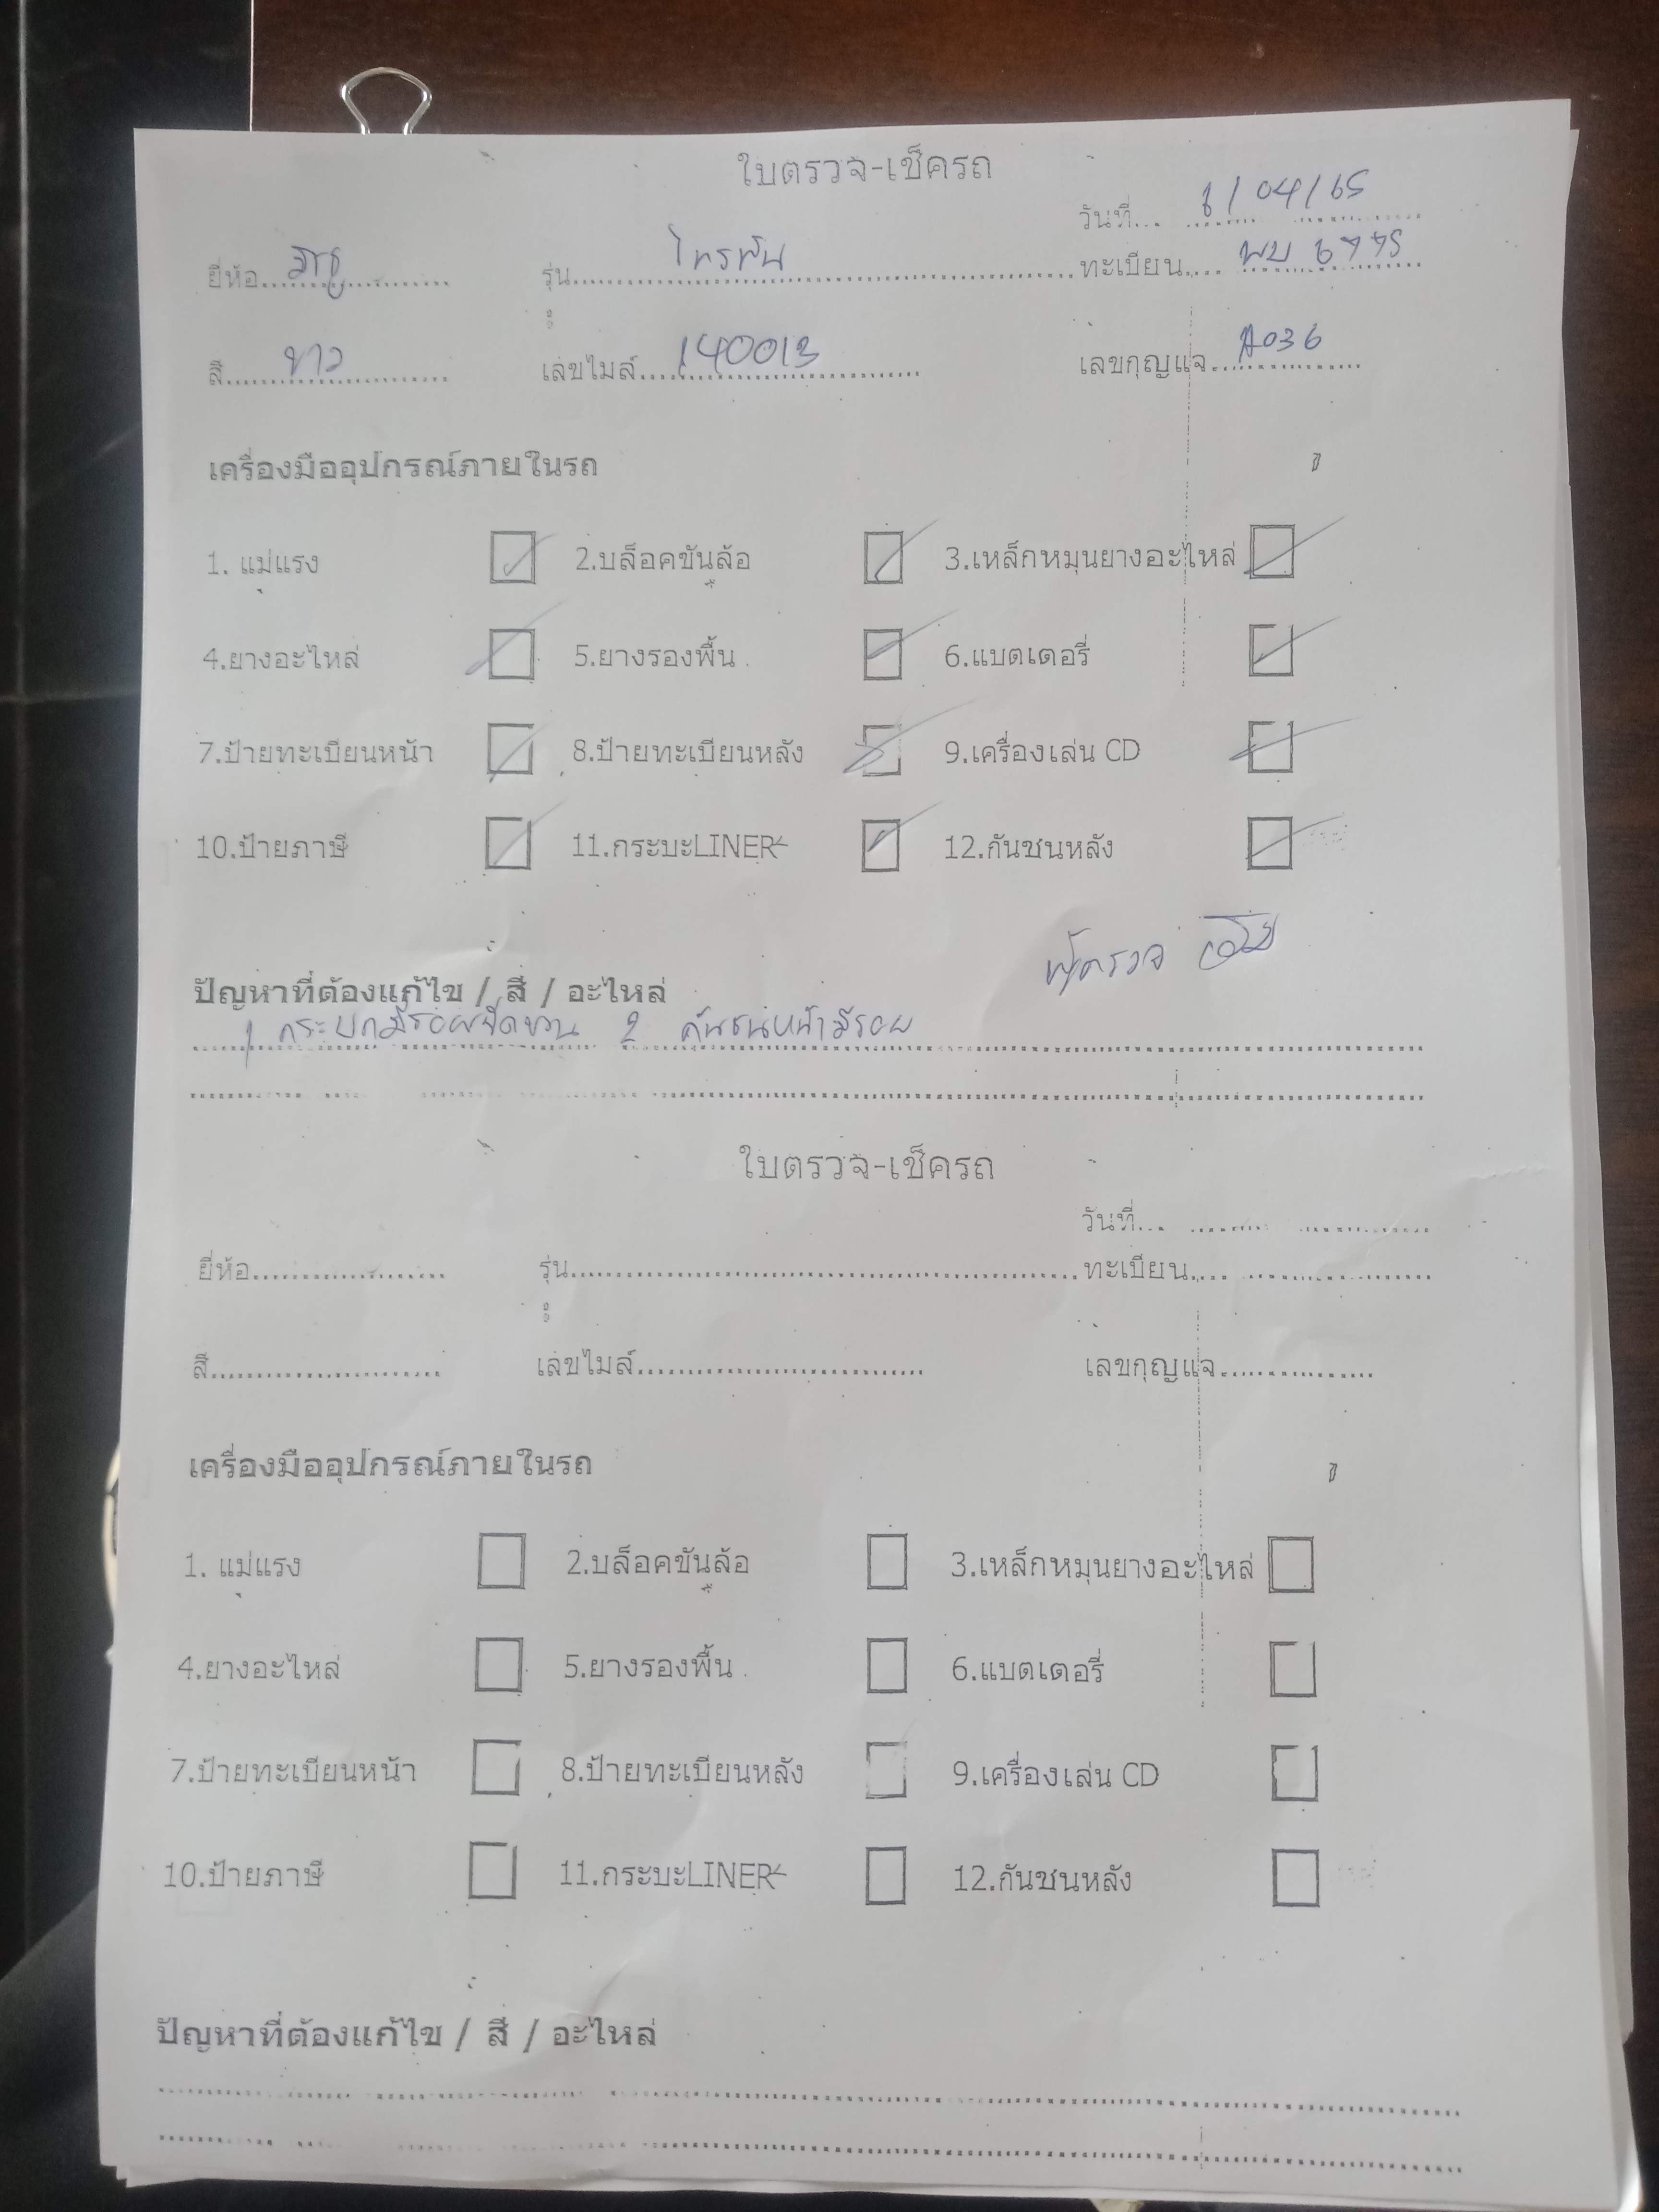 ใบตรวจ-เช็ครถ
วันที่.... 1/04/65
ยี่ห้อ........ รุ่น........ ไทรทัน ทะเบียน.... 
สี........ ขาว เลขไมล์........ 140013 เลขกุญแจ........ A036
เครื่องมืออุปกรณ์ภายในรถ
1. แม่แรง 2.บล็อคขันล้อ 3.เหล็กหมุนยางอะไหล่
4.ยางอะไหล่ 5.ยางรองพื้น 6.แบตเตอรี่
7.ป้ายทะเบียนหน้า 8.ป้ายทะเบียนหลัง 9.เครื่องเล่น CD
10.ป้ายภาษี 11.กระบะLINER 12.กันชนหลัง
ผู้ตรวจ
ปัญหาที่ต้องแก้ไข / สี / อะไหล่
1 กระบะมีรอยขีดข่วน 2 กันชนหน้ามีรอย
ใบตรวจ-เช็ครถ
วันที่....
ยี่ห้อ........ รุ่น........ ทะเบียน....
สี........ เลขไมล์........ เลขกุญแจ........
เครื่องมืออุปกรณ์ภายในรถ
1. แม่แรง 2.บล็อคขันล้อ 3.เหล็กหมุนยางอะไหล่
4.ยางอะไหล่ 5.ยางรองพื้น 6.แบตเตอรี่
7.ป้ายทะเบียนหน้า 8.ป้ายทะเบียนหลัง 9.เครื่องเล่น CD
10.ป้ายภาษี 11.กระบะLINER 12.กันชนหลัง
ปัญหาที่ต้องแก้ไข / สี / อะไหล่